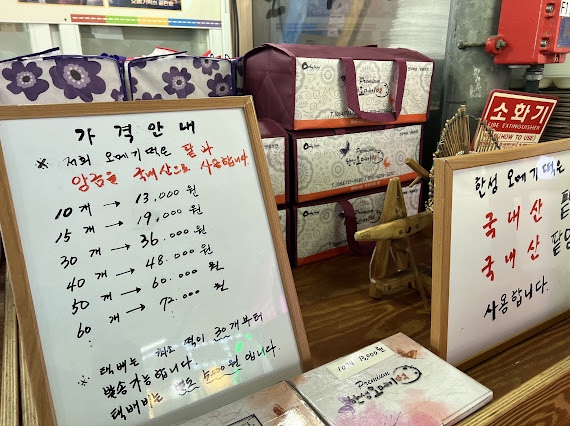 가격안내
※ 저희 오메기떡은 팥과
앙금을 국내산으로 사용합니다
10개 → 13,000원
15개 → 19,000원
30개 → 36,000원
40개 → 48,000원
50개 → 60,000원
60개 → 72,000원
※ 택배는 떡이 30개부터
발송가능합니다.
택배비는 5,000원입니다.
Premium
소화기
FIRE EXTINGUISHER
HOW TO USE
한성 오메기떡은
국내산 팥
국내산
사용합니다.
Premium
한성오메기떡